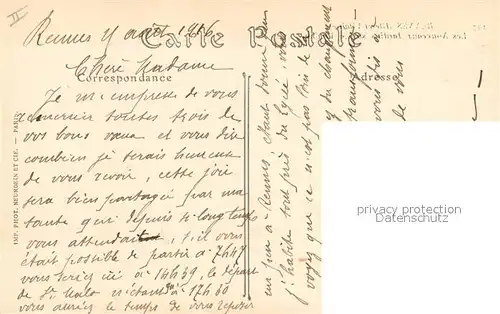 II
Rennes 4 août 1916
Carte Postale
Chère Madame
Correspondance
Adresse
Je m'empresse de vous
remercier toutes trois de
vos bons vœux et vous dire
combien je serais heureuse
de vous revoir, cette joie
sera bien partagée par ma
tante qui depuis si longtemps
vous attendait, s'il vous
était possible de partir à 7h47
vous seriez ici à 14h59, le départ
de St Malo n'étant qu'à 17h40
vous auriez le temps de vous reposer
un peu à Rennes, étant donné que
j'habite tout près du Lycée, vous
voyez que ce n'est pas très
du changement
vous
de vous
IMP. PHOT. NEURDEIN ET CIE. — PARIS
privacy protected
Datenschutz